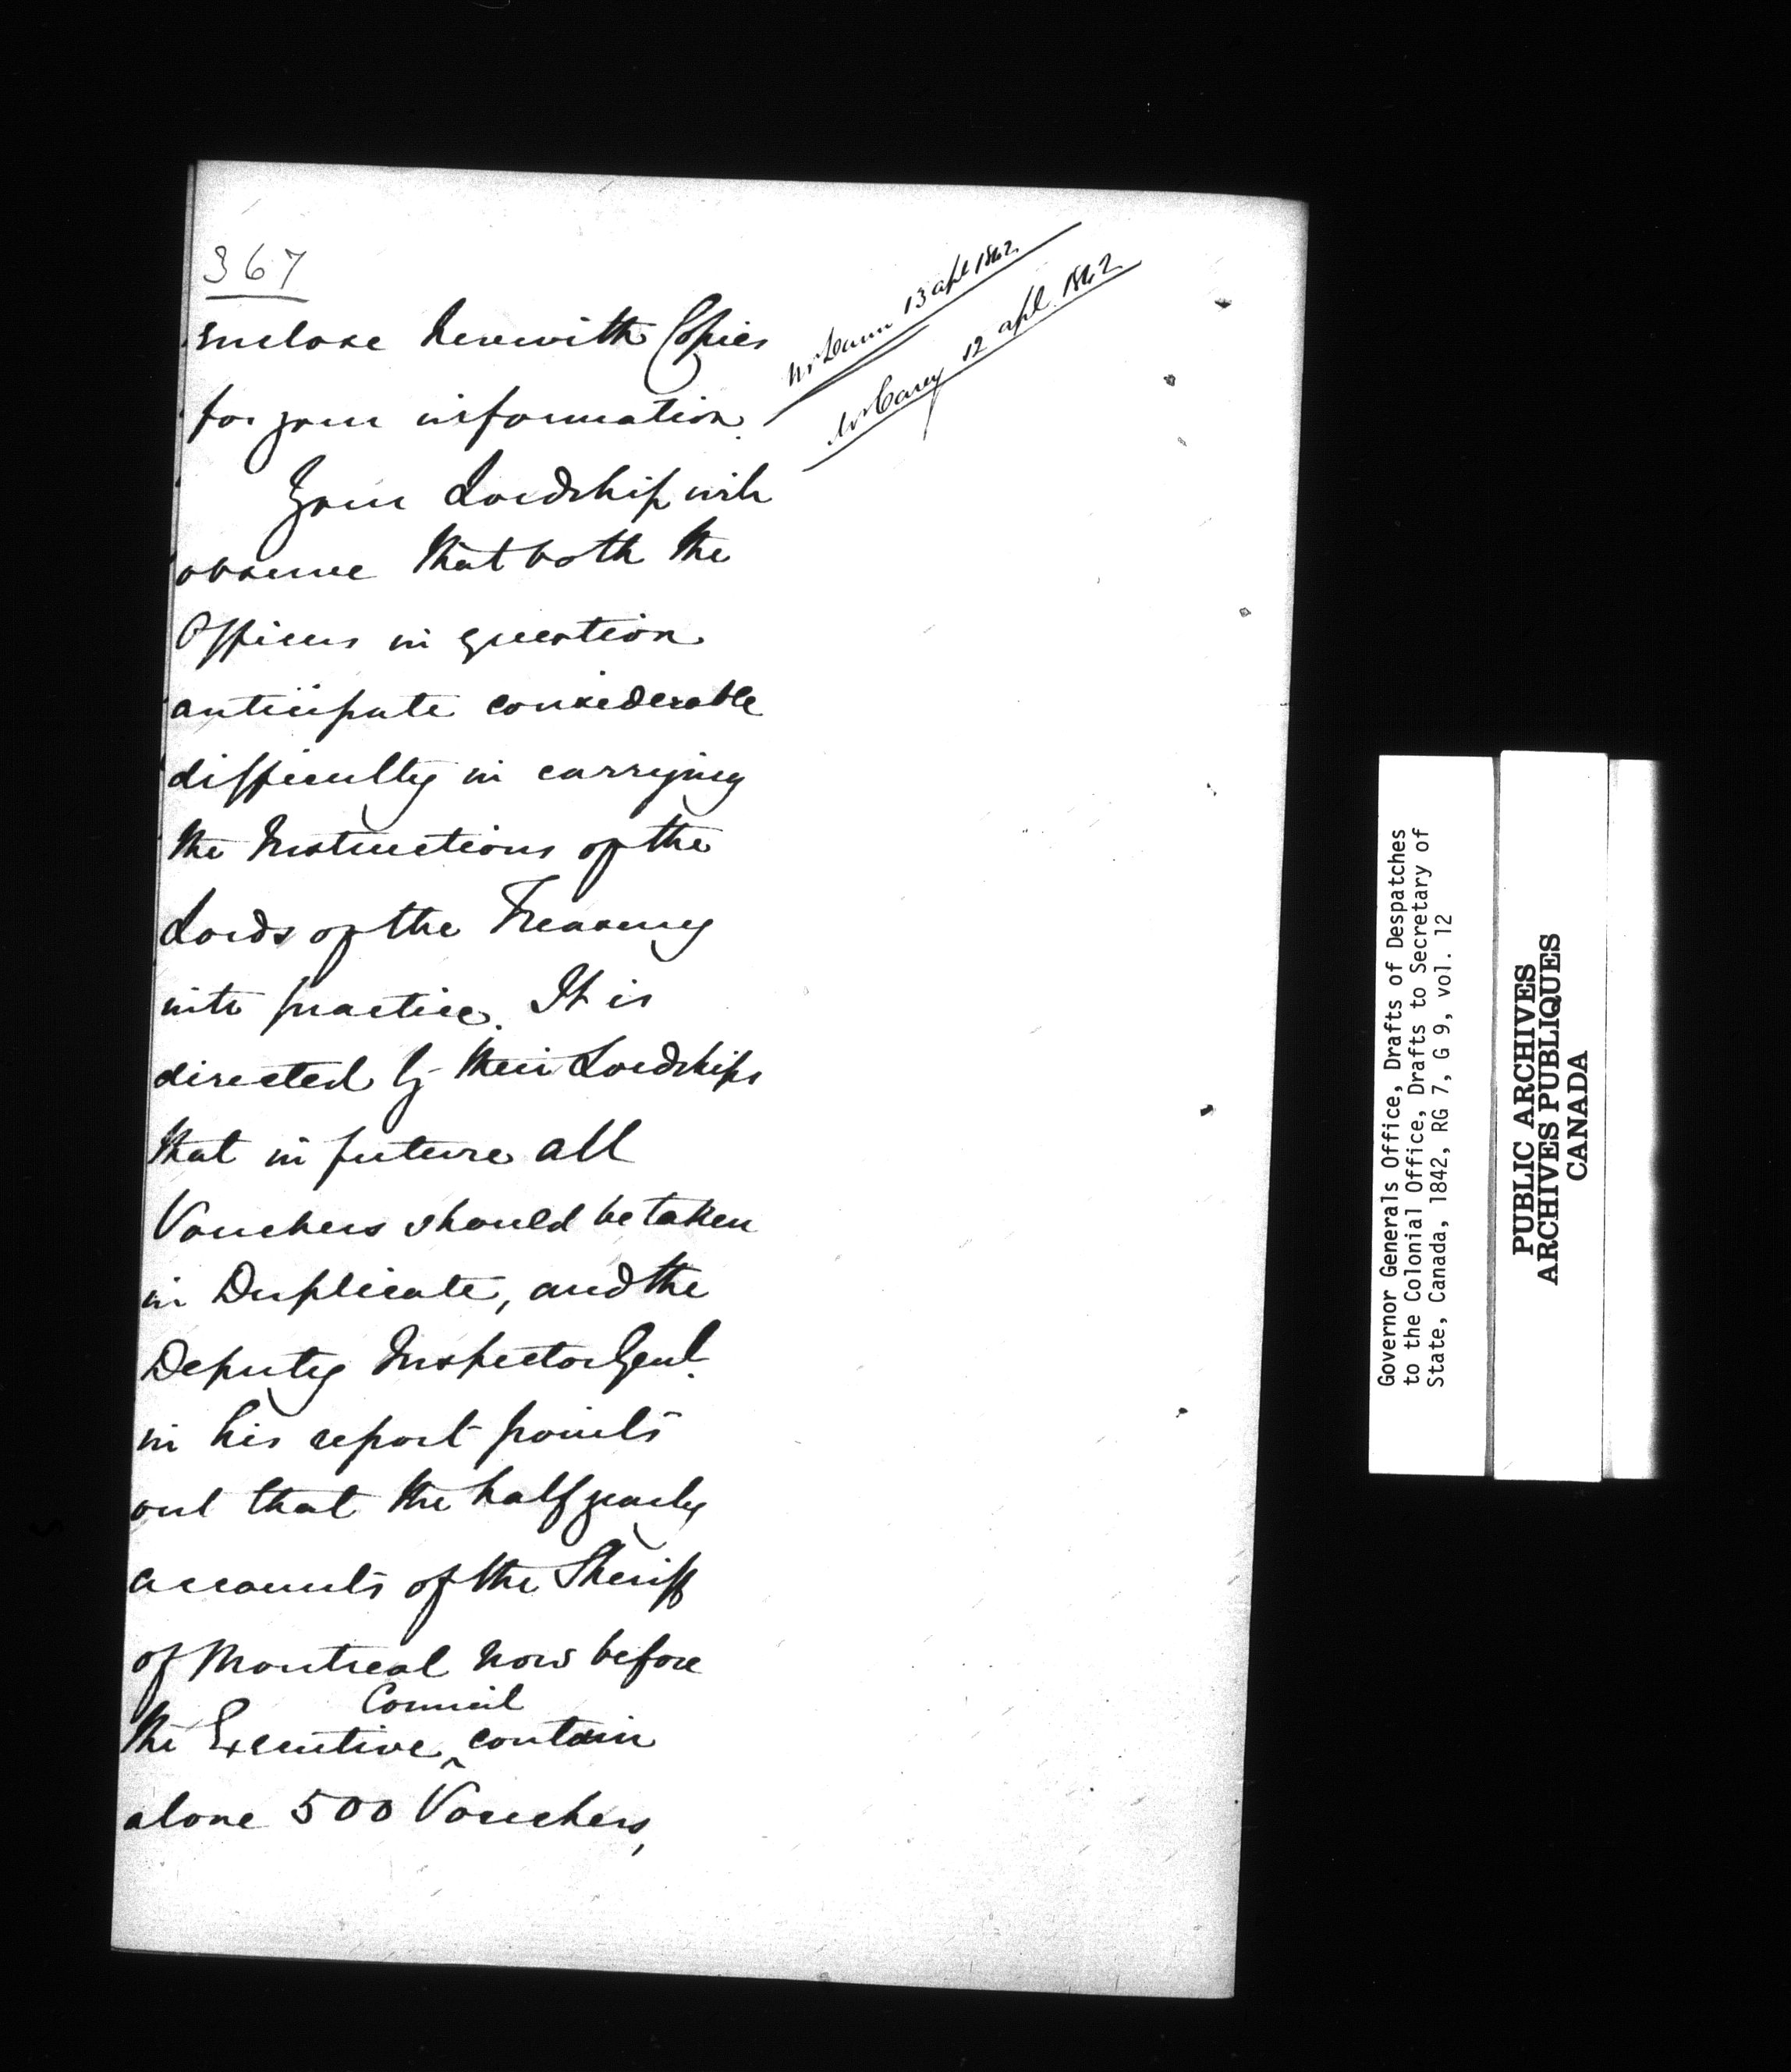 367
enclose herewith Copies
for your information.
Mr Dunn 13 apl 1842
Mr Carey 12 apl 1842
Your Lordship will
observe that both the
Officers in question
anticipate considerable
difficulty in carrying
the Instructions of the
Lords of the Treasury
into practice. It is
directed by their Lordships
that in future all
Vouchers should be taken
in Duplicate, and the
Deputy Inspector Genl.
in his report points
out that the half yearly
accounts of the Sheriff
of Montreal now before
Council
the Executive ^ contain
alone 500 Vouchers,
Governor Generals Office, Drafts of Despatches
to the Colonial Office, Drafts to Secretary of
State, Canada, 1842, RG 7, G 9, vol. 12
PUBLIC ARCHIVES
ARCHIVES PUBLIQUES
CANADA